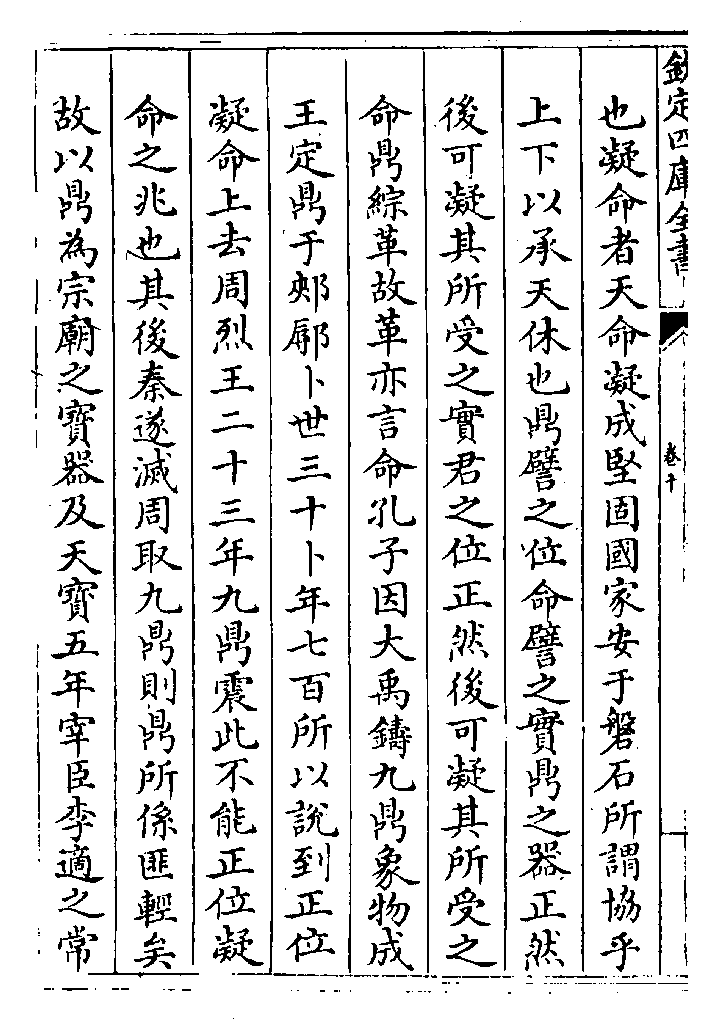 欽定四庫全書
卷十
也凝命者天命凝成堅固國家安于磐石所謂協乎
上下以承天休也鼎譬之位命譬之實鼎之器正然
後可凝其所受之實君之位正然後可凝其所受之
命鼎綜革故革亦言命孔子因大禹鑄九鼎象物成
王定鼎于郟鄏卜世三十卜年七百所以說到正位
凝命上去周烈王二十三年九鼎震此不能正位凝
命之兆也其後秦遂滅周取九鼎則鼎所係匪輕矣
故以鼎為宗廟之寶器及天寶五年宰臣李適之常